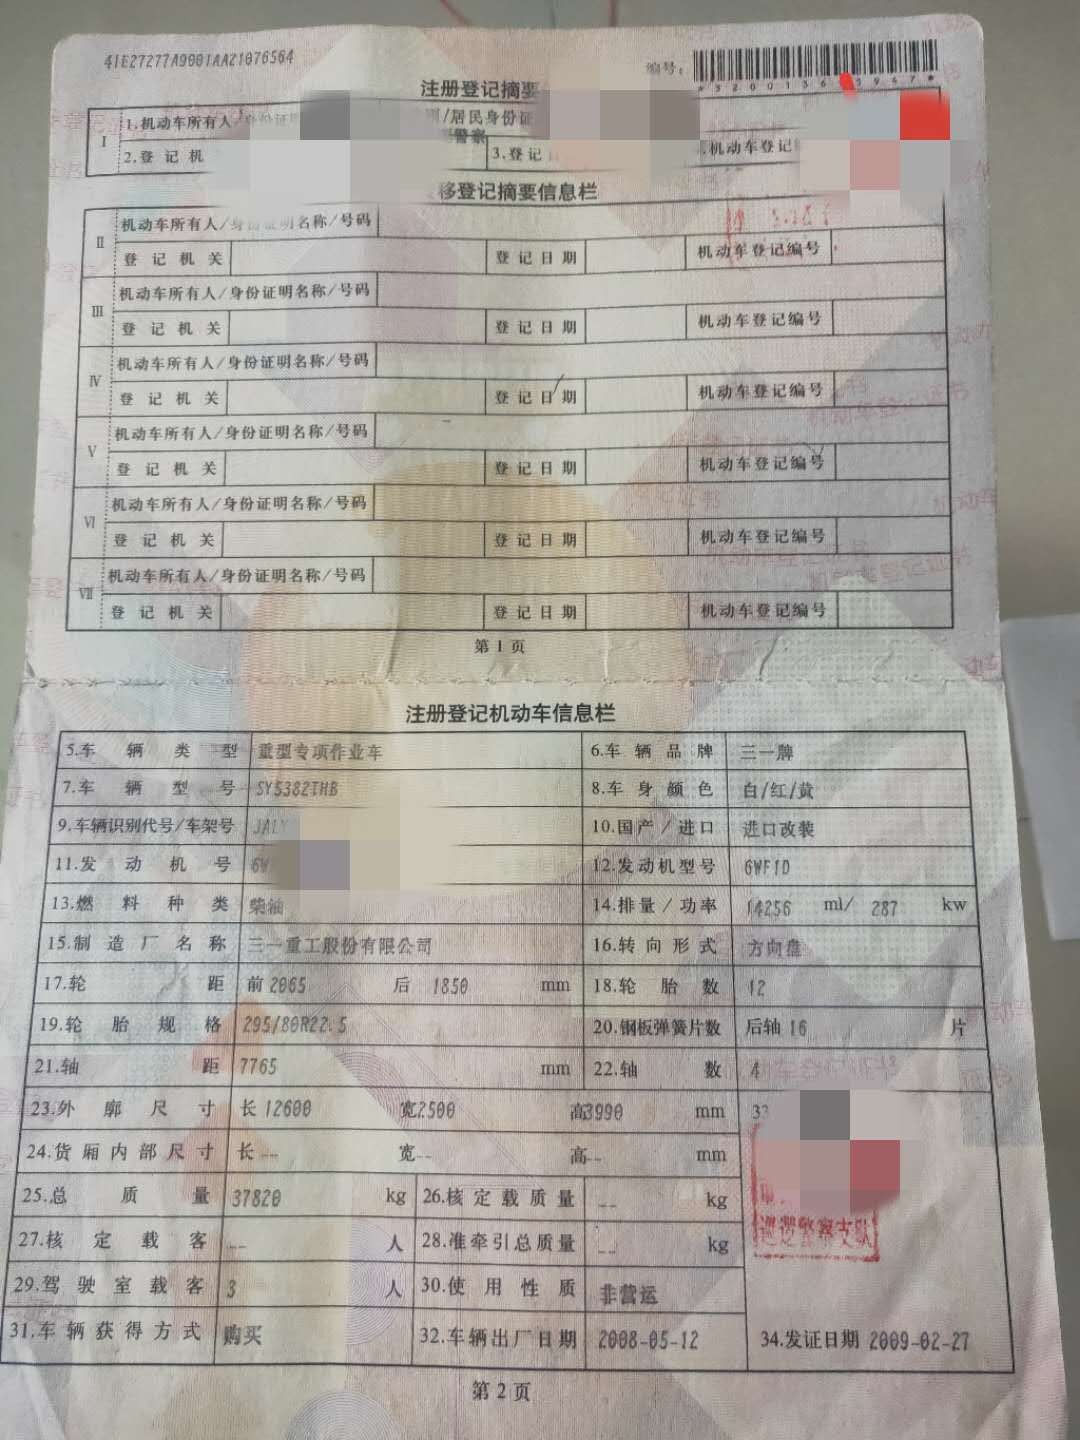 41E27277A9001AA21076564
编号:
注册登记摘要
I
1.机动车所有人/身份证明
别/居民身份证
警察
2.登记机
3.登记
机动车登记
移登记摘要信息栏
II
机动车所有人/身份证明名称/号码
登记机关
登记日期
机动车登记编号
III
机动车所有人/身份证明名称/号码
登记机关
登记日期
机动车登记编号
IV
机动车所有人/身份证明名称/号码
登记机关
登记日期
机动车登记编号
V
机动车所有人/身份证明名称/号码
登记机关
登记日期
机动车登记编号
VI
机动车所有人/身份证明名称/号码
登记机关
登记日期
机动车登记编号
VII
机动车所有人/身份证明名称/号码
登记机关
登记日期
机动车登记编号
第1页
注册登记机动车信息栏
5.车辆类型 重型专项作业车
6.车辆品牌 三一牌
7.车辆型号 SY5382THB
8.车身颜色 白/红/黄
9.车辆识别代号/车架号 JALY
10.国产/进口 进口改装
11.发动机号 6W
12.发动机型号 6WF1D
13.燃料种类 柴油
14.排量/功率 14256 ml/ 287 kw
15.制造厂名称 三一重工股份有限公司
16.转向形式 方向盘
17.轮距 前2065 后1850 mm
18.轮胎数 12
19.轮胎规格 295/80R22.5
20.钢板弹簧片数 后轴16 片
21.轴距 7765 mm
22.轴数 4
23.外廓尺寸 长12600 宽2500 高3990 mm
33
24.货厢内部尺寸 长-- 宽-- 高-- mm
25.总质量 37820 kg
26.核定载质量 -- kg
巡逻警察支队
27.核定载客 -- 人
28.准牵引总质量 -- kg
29.驾驶室载客 3 人
30.使用性质 非营运
31.车辆获得方式 购买
32.车辆出厂日期 2008-05-12
34.发证日期 2009-02-27
第2页